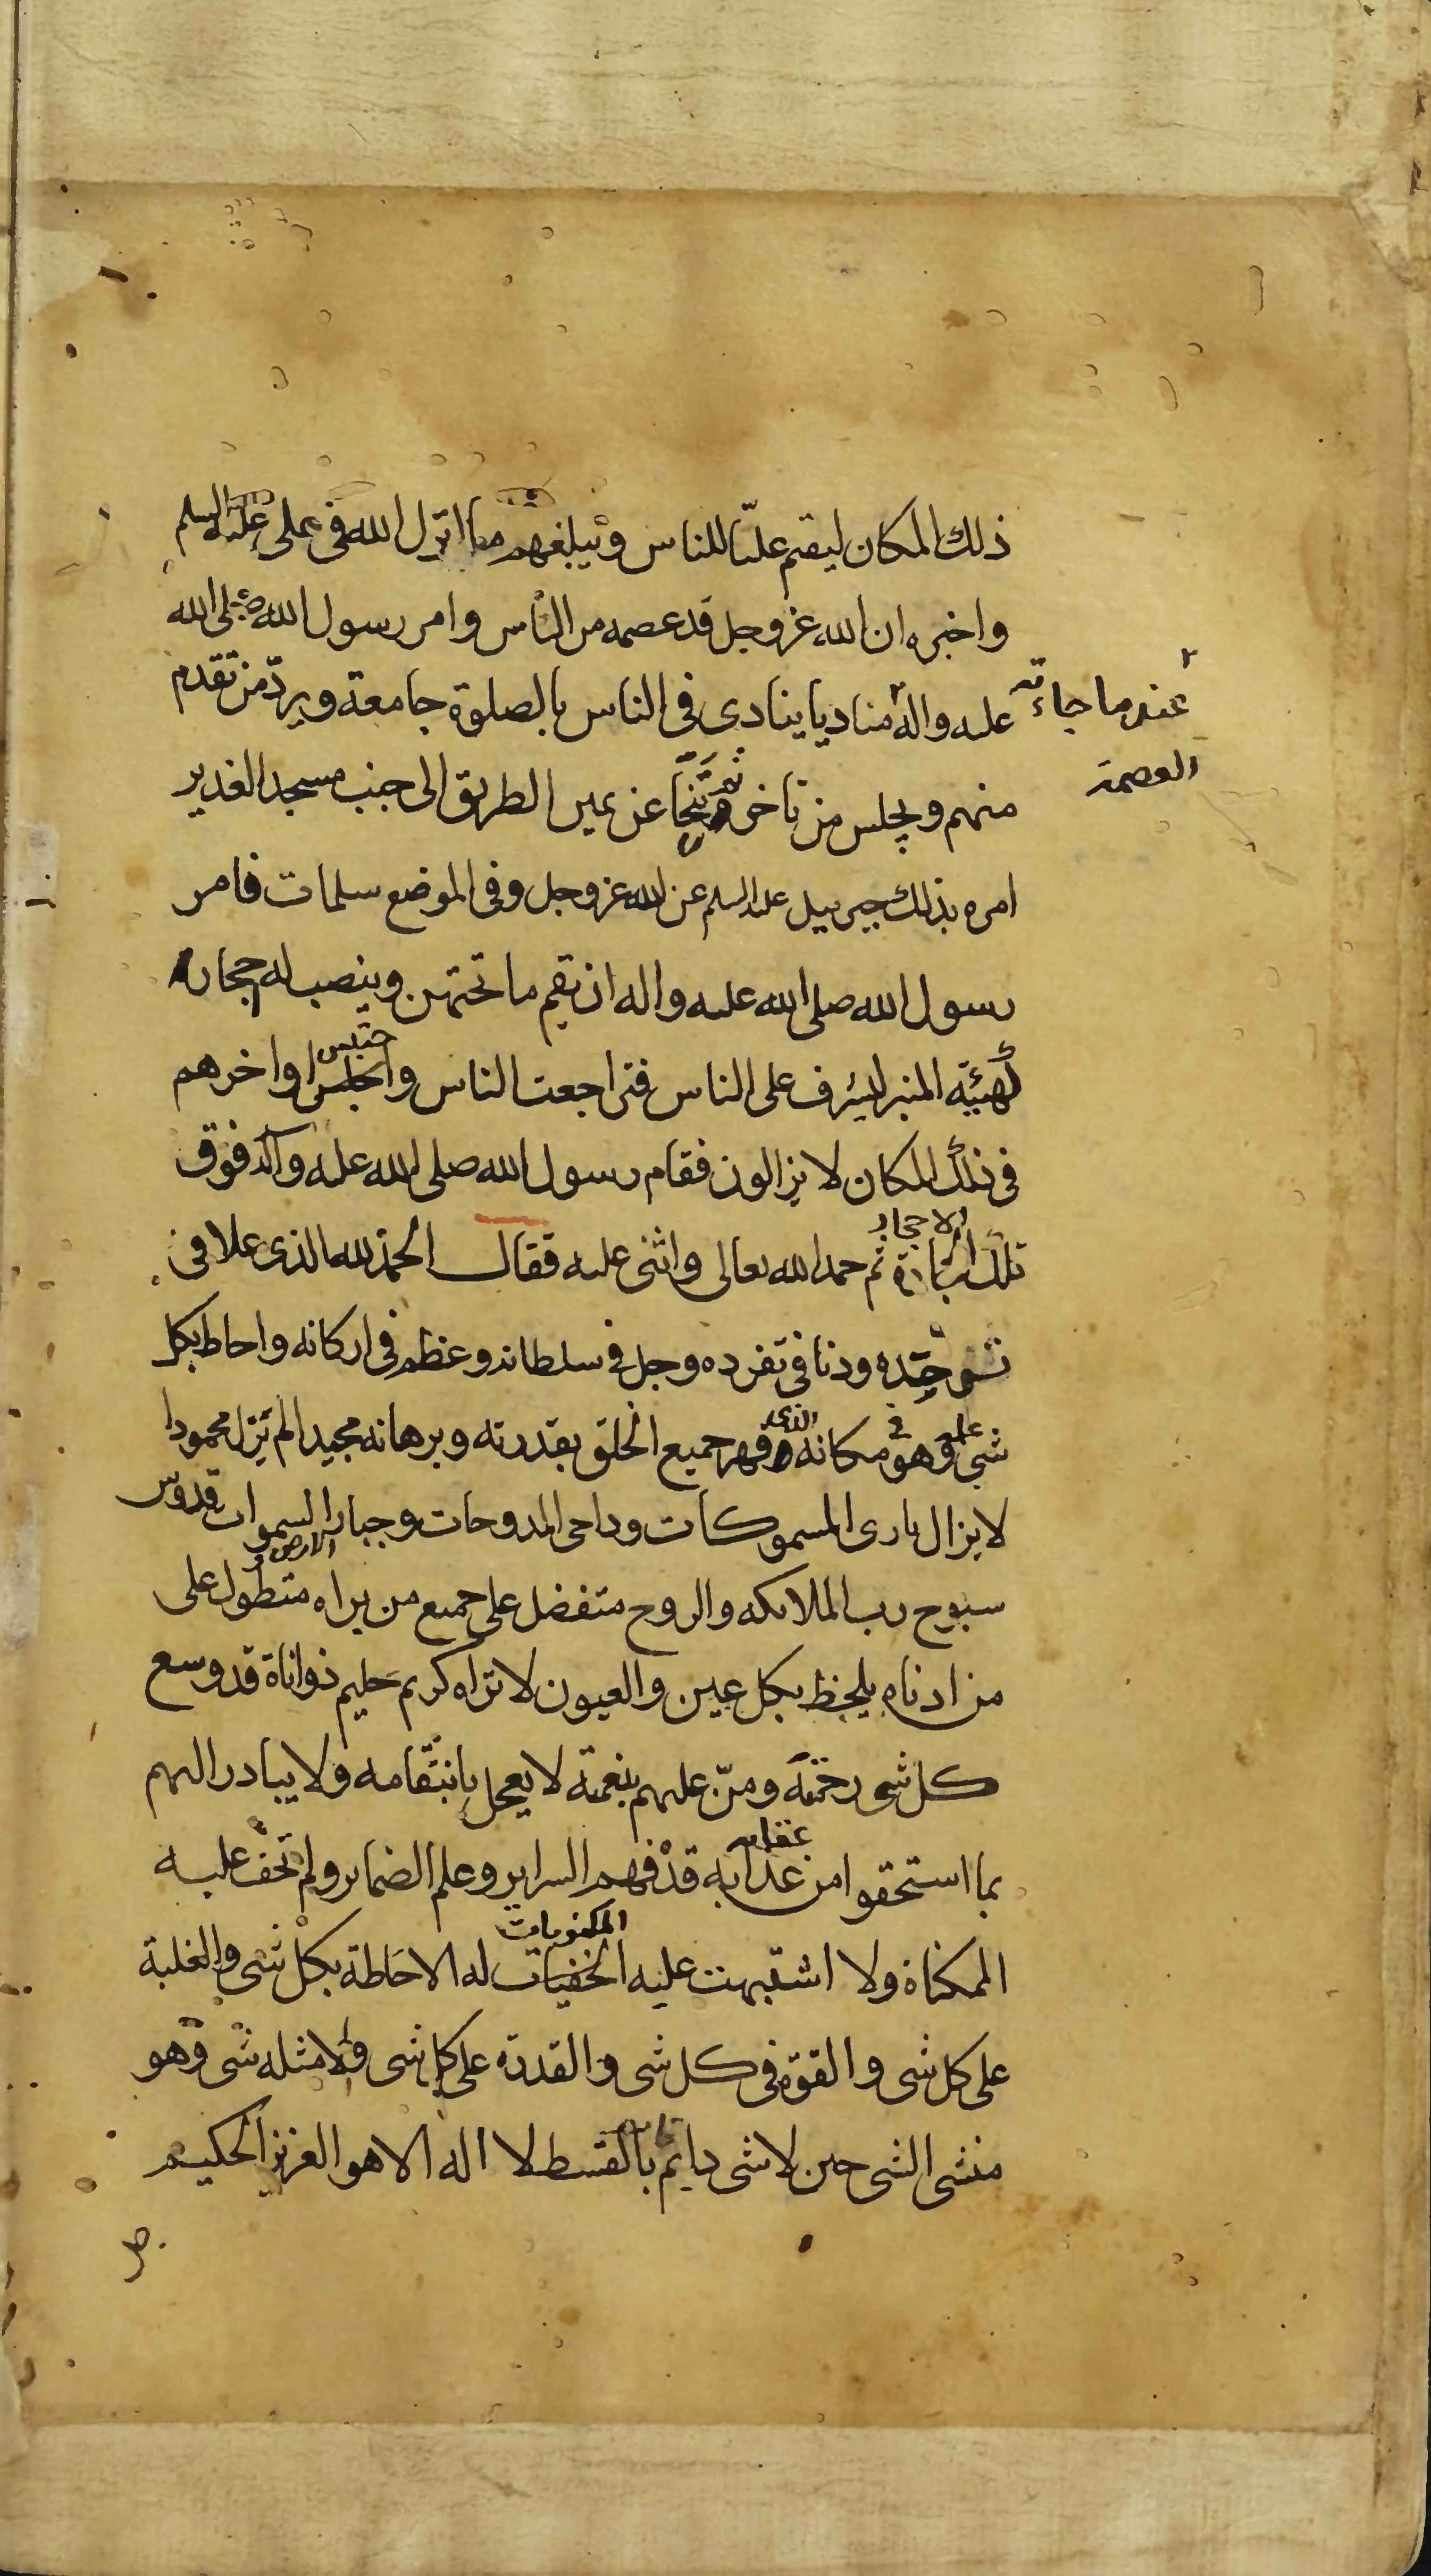 ذلك المكان ليقيم عليّا للناس ويبلغهم ما انزل الله في علي عليه السلم
واخبره ان الله عز وجل قد عصمه من الناس وامر رسول الله صلى الله
عليه واله مناديا ينادى فى الناس بالصلوة جامعة ويردّ من تقدم
عندما جاءته
العصمة
منهم ويحبس من تاخر ثم تنحّا عن يمين الطريق الى جنب مسجد الغدير
امره بذلك جبرئيل عليه السلم عن الله عز وجل وفى الموضع سلمات فامر
رسول الله صلى الله عليه واله ان يقم ما تحتهن وينصب له احجار
كهيئة المنبر ليشرف على الناس فتراجعت الناس واحتبس اواخرهم
حتبس
في ذلك المكان لا يزالون فقام رسول الله صلى الله عليه وآله فوق
الاحجار
تلك ثم حمد الله تعالى واثنى عليه فقال الحمد لله الذى علا فى
توحّده ودنا في تفرده وجل في سلطانه وعظم في اركانه واحاط بكل
علما في الذى
شيء وهو مكانه وقهر جميع الخلق بقدرته وبرهانه مجيدا لم يزل محمودا
لا يزال بارى المسموكات وداحى المدحوات وجبار السموات قدوس
الارض و
سبوح رب الملائكه والروح متفضل على جميع من براه متطول على
من ادناه يلحظ بكل عين والعيون لا تراه كريم حليم ذو اناة قد وسع
كل شى رحمته ومنّ عليهم بنعمته لا يعجل بانتقامه ولا يبادر اليهم
عقابه
بما استحقوا من عذابه قد فهم السراير وعلم الضماير ولم تخف عليه
المكنومات
المكناة ولا اشتبهت عليه الخفيات له الاحاطة بكل شى والغلبة
على كل شى والقوة فى كل شى والقدرة على كل شى ولا مثله شى وهو
منشى الشى حين لا شى دايم بالقسط لا اله الا هو العزيز الحكيم